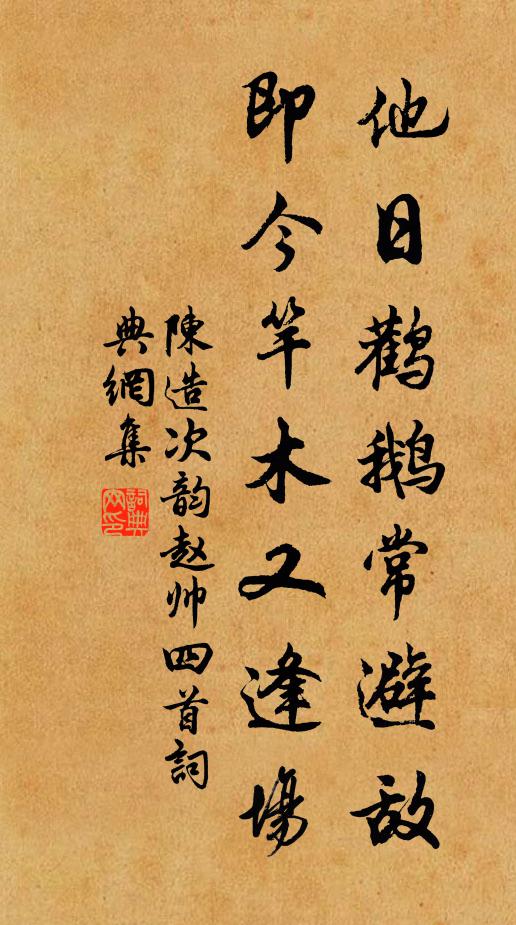 他日鸛鵝常避敌
即今竿木又逢場
陳造次韵赵帅四首詞
典網集
詞典网印